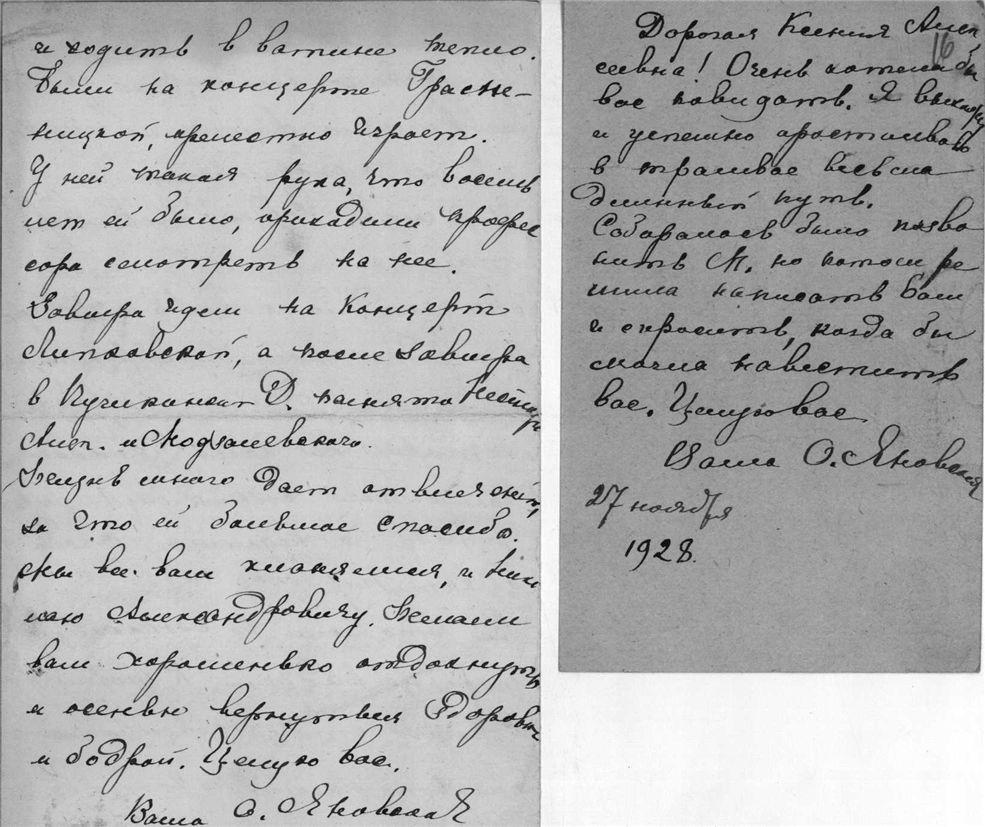 и ходить в ватине тепло.
Были на концерте
ницкой, прелестно играет.
У ней такая рука, что восемь
лет ей было, приходили профес
сора смотреть на нее.
Завтра идем на концерт
Липковской, а после завтра
в Д. памяти
Алек. и Модзалевского.
Жизнь много дает
за что ей большое спасибо.
Мы все вам кланяемся, и Нико
лаю Александровичу. Желаем
вам хорошенько отдохнуть
и осенью вернуться здоровой
и бодрой. Целую вас.
Ваша О. Яновская
16
Дорогая Ксения Алек
сеевна! Очень хотела бы
вас повидать. Я выхожу
и успешно простаиваю
в трамвае весьма
длинный путь.
Собиралась было позво
нить М. но потом ре
шила написать Вам
и спросить, когда бы
могла навестить
вас. Целую вас
Ваша О. Яновская
27 ноября
1928.